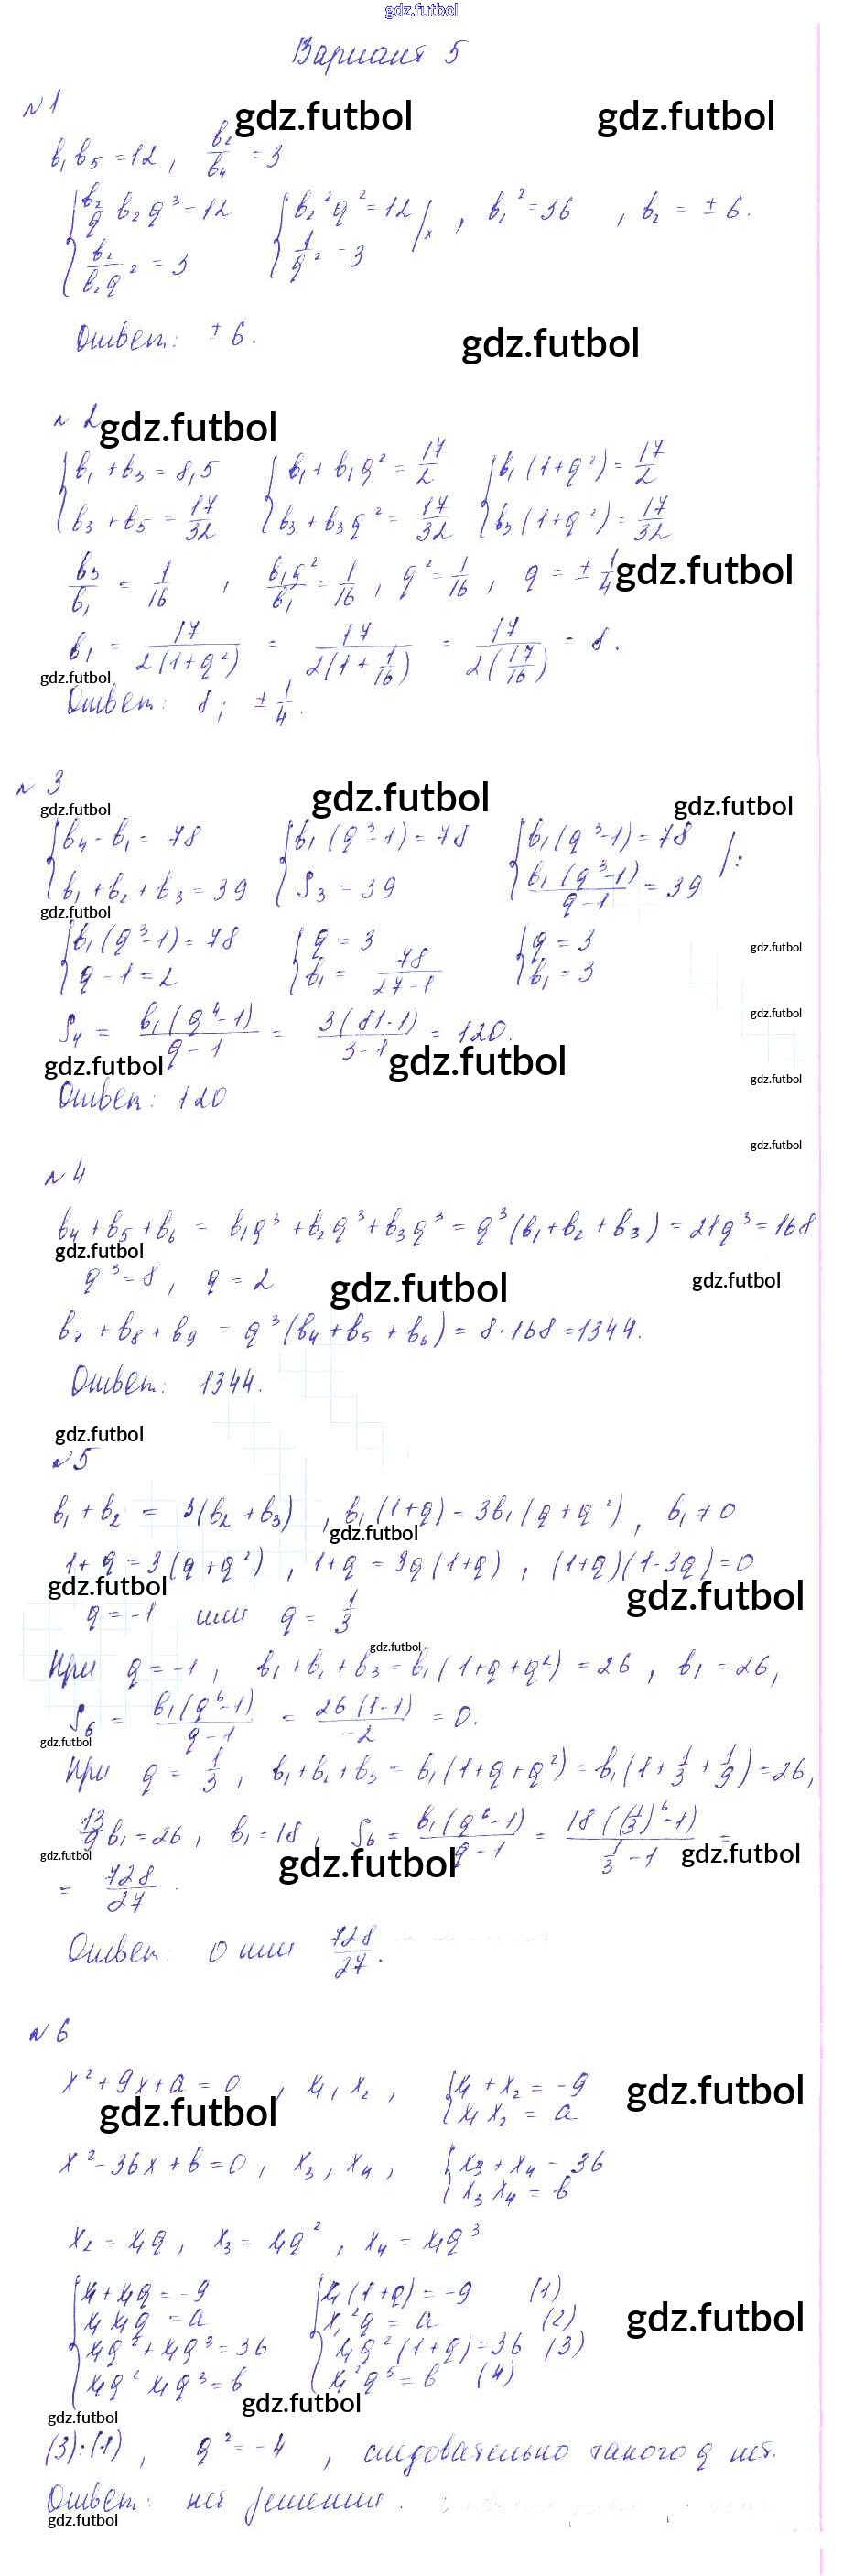 gdz.futbol
Вариант 5
№1
gdz.futbol gdz.futbol
b₁b₅ = 12, b₂/b₄ = 3
{ b₂/q b₂q³ = 12 { b₂²q² = 12 |× , b₂² = 36 , b₂ = ± 6.
b₂/b₂q² = 3 1/q² = 3
Ответ: ± 6.
gdz.futbol
№2
gdz.futbol
{ b₁ + b₃ = 8,5 { b₁ + b₁q² = 17/2 { b₁(1+q²) = 17/2
b₃ + b₅ = 17/32 b₃ + b₃q² = 17/32 b₃(1+q²) = 17/32
b₃/b₁ = 1/16 , b₁q²/b₁ = 1/16 , q² = 1/16 , q = ± 1/4
gdz.futbol
b₁ = 17/2(1+q²) = 17/2(1+1/16) = 17/2(17/16) = 8.
gdz.futbol
Ответ: 8; ± 1/4.
№3
gdz.futbol gdz.futbol gdz.futbol
{ b₄ - b₁ = 78 { b₁(q³-1) = 78 { b₁(q³-1) = 78 |:
b₁ + b₂ + b₃ = 39 S₃ = 39 b₁(q³-1)/q-1 = 39
gdz.futbol
{ b₁(q³-1) = 78 { q = 3 { q = 3
q - 1 = 2 b₁ = 78/27-1 b₁ = 3
gdz.futbol
gdz.futbol
S₄ = b₁(q⁴-1)/q-1 = 3(81-1)/3-1 = 120.
gdz.futbol gdz.futbol
gdz.futbol
Ответ: 120
gdz.futbol
№4
b₄ + b₅ + b₆ = b₁q³ + b₂q³ + b₃q³ = q³(b₁+b₂+b₃) = 21q³ = 168
gdz.futbol
q³ = 8, q = 2
gdz.futbol gdz.futbol
b₇ + b₈ + b₉ = q³(b₄ + b₅ + b₆) = 8·168 = 1344.
Ответ: 1344.
gdz.futbol
№5
b₁ + b₂ = 3(b₂ + b₃) , b₁(1+q) = 3b₁(q+q²), b₁ ≠ 0
gdz.futbol
1+q = 3(q+q²) , 1+q = 3q(1+q) , (1+q)(1-3q) = 0
gdz.futbol gdz.futbol
q = -1 или q = 1/3
gdz.futbol
При q = -1, b₁ + b₂ + b₃ = b₁(1+q+q²) = 26, b₁ = 26,
S₆ = b₁(q⁶-1)/q-1 = 26(1-1)/-2 = 0.
gdz.futbol
При q = 1/3, b₁+b₂+b₃ = b₁(1+q+q²) = b₁(1+1/3+1/9) = 26,
13/9 b₁ = 26, b₁ = 18, S₆ = b₁(q⁶-1)/q-1 = 18((1/3)⁶-1)/1/3-1 =
gdz.futbol gdz.futbol gdz.futbol
= 728/27.
Ответ: 0 или 728/27.
№6
x² + 9x + a = 0 , x₁, x₂ , { x₁ + x₂ = -9
x₁x₂ = a
gdz.futbol gdz.futbol
x² - 36x + b = 0, x₃, x₄, { x₃ + x₄ = 36
x₃x₄ = b
x₂ = x₁q, x₃ = x₁q², x₄ = x₁q³
{ x₁ + x₁q = -9 { x₁(1+q) = -9 (1)
x₁x₁q = a x₁²q = a (2)
gdz.futbol
x₁q² + x₁q³ = 36 x₁q²(1+q) = 36 (3)
x₁q² x₁q³ = b x₁²q⁵ = b (4)
gdz.futbol
gdz.futbol
(3):(1), q² = -4 , следовательно такого q нет.
Ответ: нет решений.
gdz.futbol